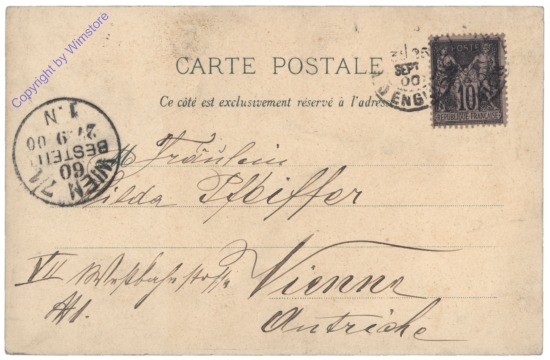 Copyright by Wimstore
CARTE POSTALE
Ce côté est exclusivement réservé à l'adresse
SEPT
00
D'ENGHIEN
POSTE
10
REPUBLIQUE FRANCAISE
WIEN 7/1
60
BESTELLT
27.9.00
1.N
Fräulein
Hilda Pfeiffer
VII Westbahnstraße
Vienne
Autriche